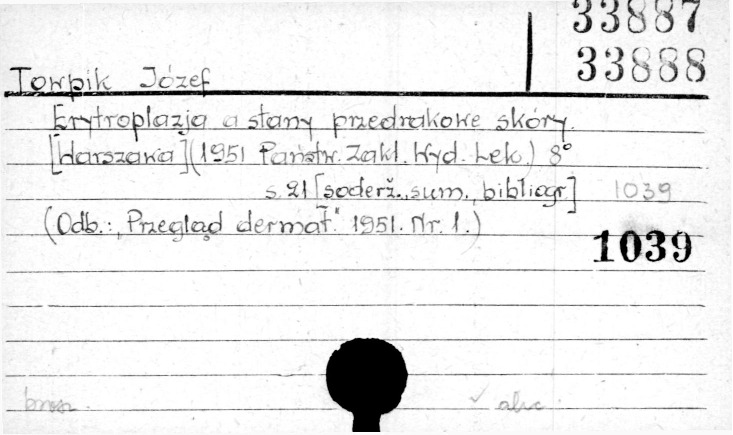 33887
33888
Towpik Józef
Erytroplazja a stany przedrakowe skóry.
[Warszawa] (1951 Państw. Zakł. Wyd. Lek.) 8°
s. 21 [soderž., sum., bibliogr.] 1039
(Odb.: „Przegląd dermat." 1951. Nr. 1.)
1039
brosz.
✓ abc